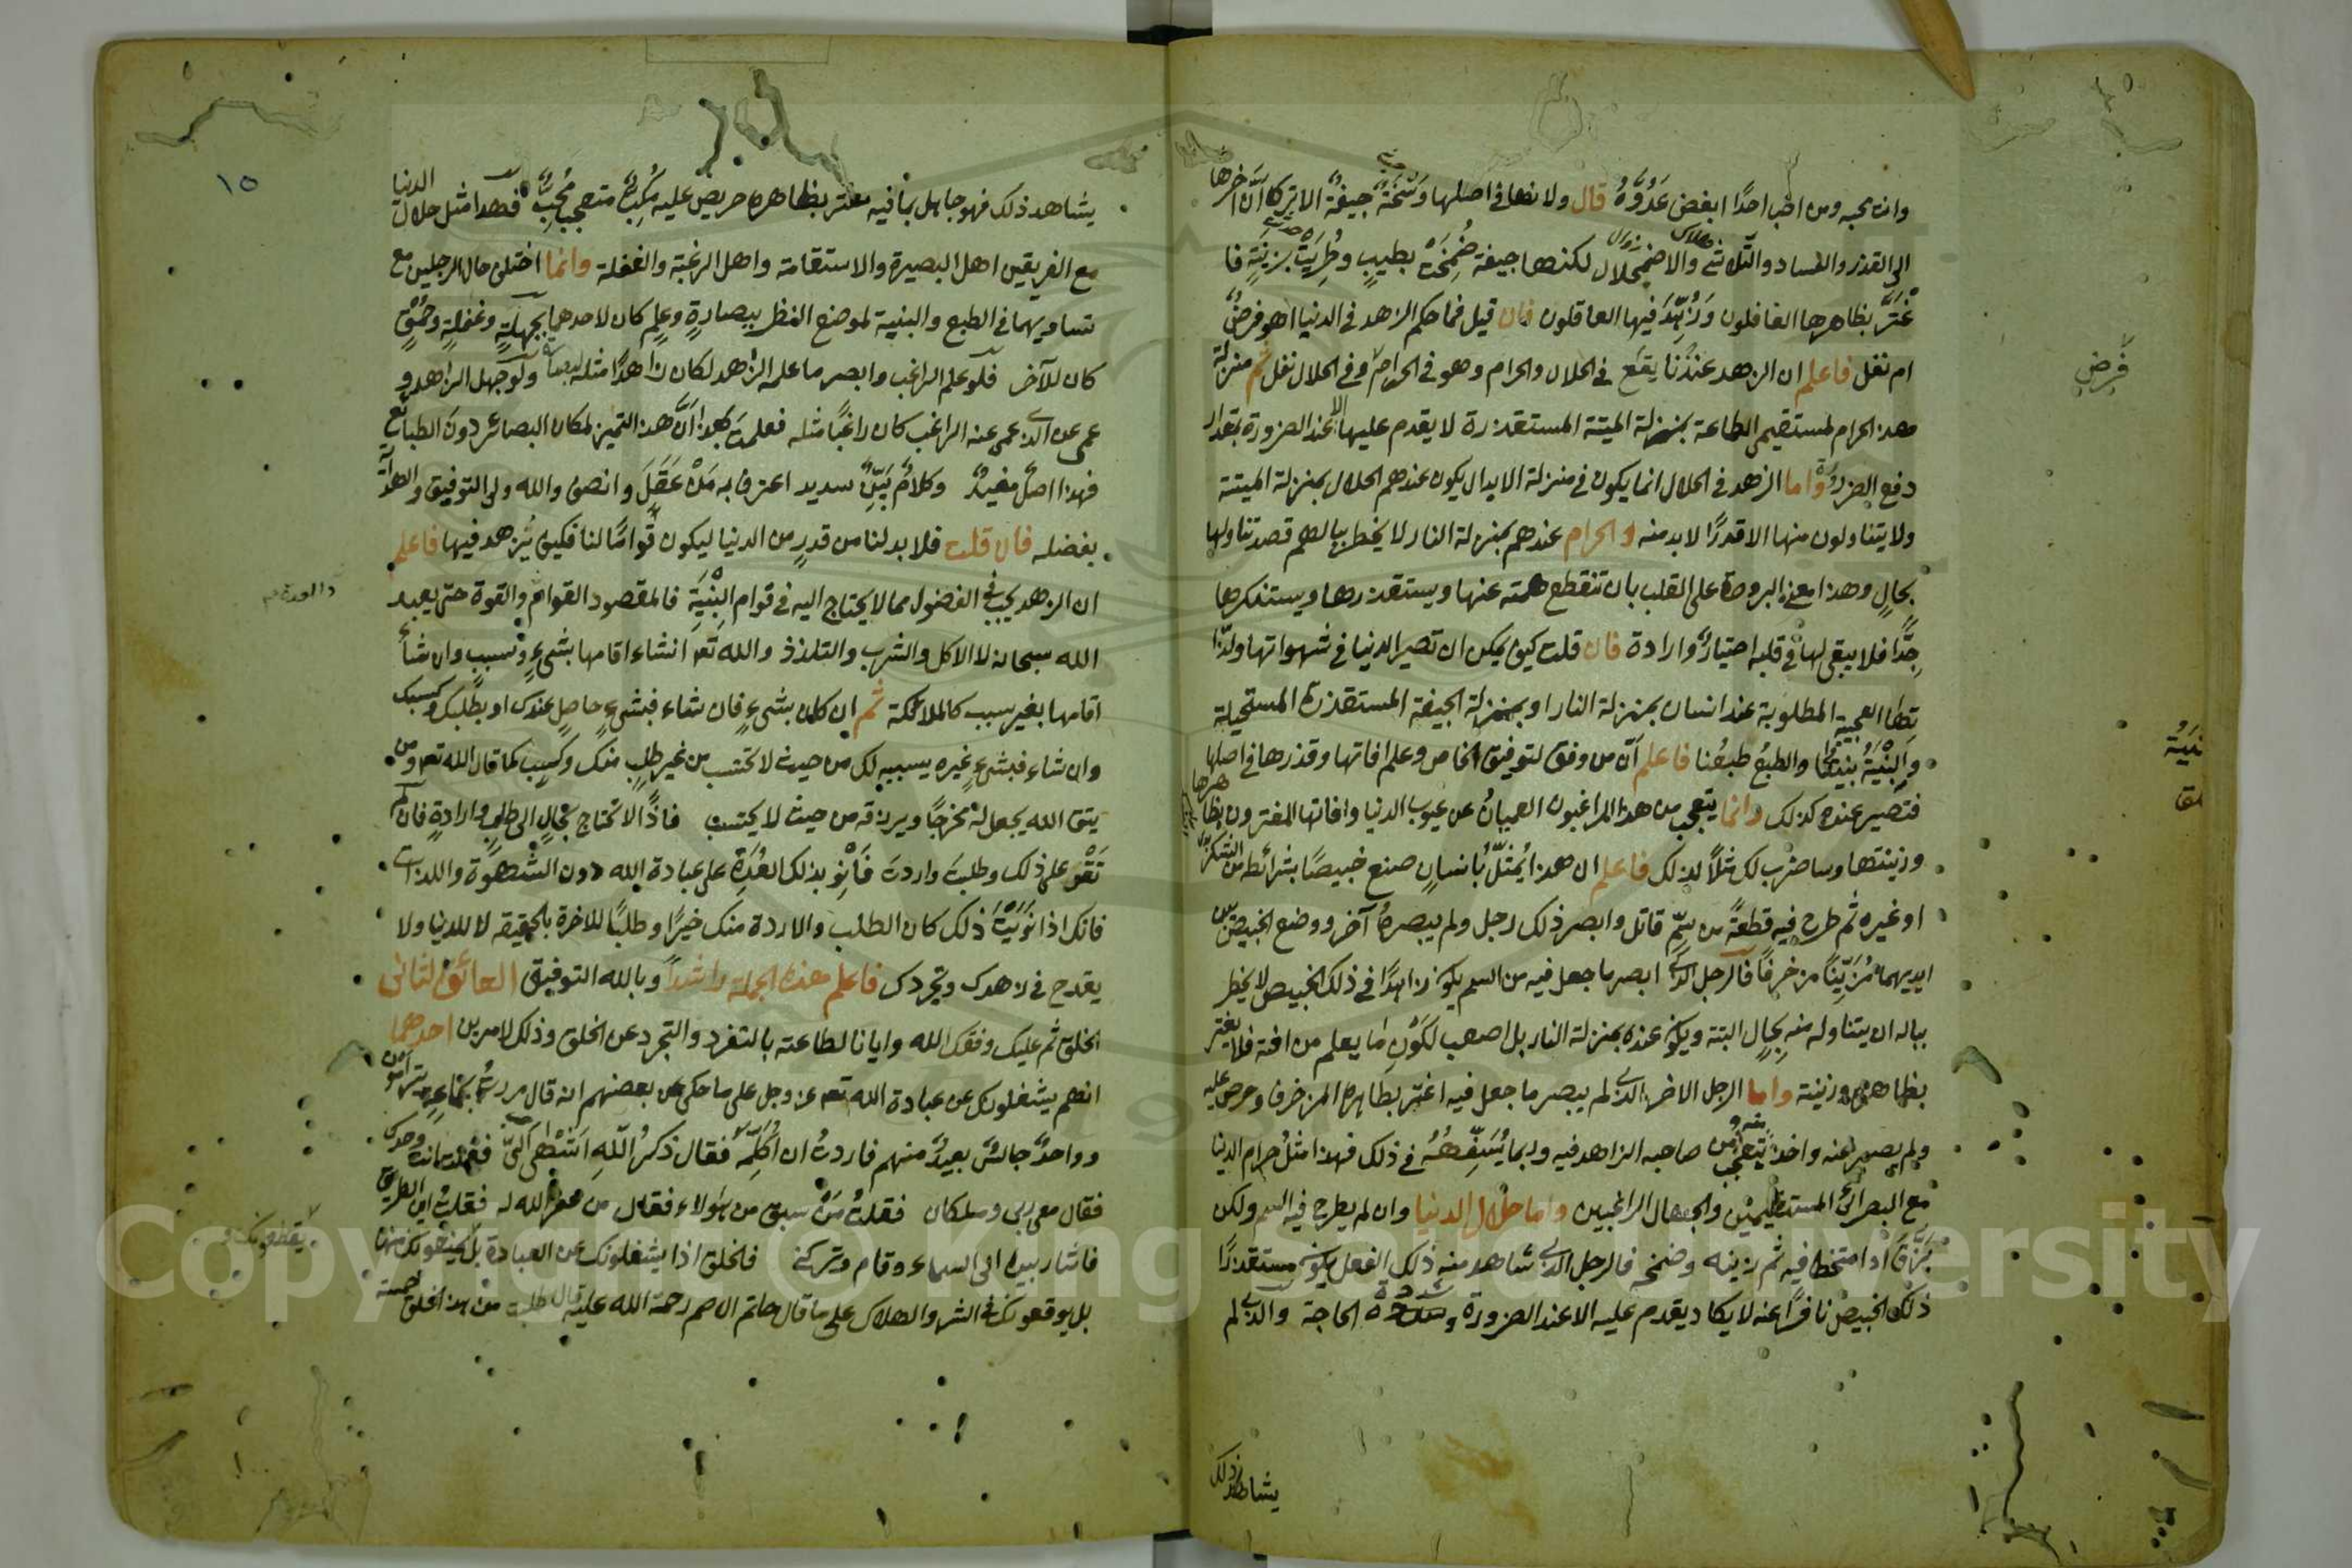 وانت تحبه ومن احب احدًا ابغض عَدُوَّهُ قال ولانها في اصلها وَسِخَةٌ جيفةٌ الا ترى ان آخرها
الى القذر والفساد والتلاشي والاضمحلال لكنها جيفة ضُمِّخَتْ بطيبٍ وطُرِّيَتْ بزينةٍ فا
غْتَرَّ بظاهرها الغافلون وَزَهِدَ فيها العاقلون فان قيل فما حكم الزهد في الدنيا اهو فرضٌ
ام نفل فاعلم ان الزهد عندنا يقع في الحلال والحرام وهو في الحرام وفي الحلال نفل ثم منزلة
هذا الحرام لمستقيمي الطاعة بمنزلة الميتة المستقذرة لا يقدم عليها الا عند الضرورة بمقدار
دفع الضرر واما الزهد في الحلال انما يكون في منزلة الابدال يكون عندهم الحلال بمنزلة الميتة
ولا يتناولون منها الا قدرًا لا بد منه والحرام عندهم بمنزلة النار لا يخطر ببالهم قصد تناولها
بحالٍ وهذا معنى البرودة على القلب بان تنقطع همته عنها ويستقذرها ويستنكرها
جِدًّا فلا يبقى لها في قلبه اختيارٌ وارادة فان قلت كيف يمكن ان تصير الدنيا في شهواتها ولذا
تها العجيبة المطلوبة عند انسان بمنزلة النار او بمنزلة الجيفة المستقذرة المستحيلة
والبِنْيَةُ بنيتنا والطبعُ طبعُنا فاعلم انّ من وفق لتوفيق الخاص وعلم افاتها وقذرها في اصلها
فتصير عنده كذلك وانما يتعجب من هذا الراغبون العميانُ عن عيوب الدنيا وافاتها المغترون بظاهرها
وزينتها وساضرب لك مثلًا لذلك فاعلم ان هذا يُمثَّلُ بانسانٍ صنع خبيصًا بشرائطه من السكر
او غيره ثم طرح فيه قطعةً من سمٍّ قاتل وابصر ذلك رجل ولم يبصرهُ آخر ووضع الخبيص بين
ايديهما مُزَيَّنًا مزخرفًا فالرجل الذي ابصر ما جعل فيه من السم يكون زاهدًا في ذلك الخبيص لا يخطر
بباله ان يتناوله منه بحالٍ البتة ويكون عنده بمنزلة النار بل اصعب لكونِ ما يعلم من افته فلا يغتر
بظاهره وزينته واما الرجل الاخر الذي لم يبصر ما جعل فيه اغتر بظاهره المزخرف وحرص عليه
ولم يصبر عنه واخذ يتعجب من صاحبه الزاهد فيه وربما يُسَفِّهُهُ في ذلك فهذا مثلُ حرام الدنيا
مع البصرائ المستقيمين والجهال الراغبين واما حلال الدنيا وان لم يطرح فيه السم ولكن
بَزَقَ او امتخط فيه ثم زينه وضمخه فالرجل الذي شاهد منه ذلك الفعل يكون مستقذرًا
ذلك الخبيص نافرًا عنه لا يكاد يقدم عليه الا عند الضرورة وشدة الحاجة والذي لم
يشاهد ذلك
فرض
١٥
يشاهد ذلك فهو جاهل بما فيه مغتر بظاهره حريص عليه مُكِبٌّ متعجب مُحِبٌّ فهذا مثل حلال الدنيا
مع الفريقين اهل البصيرة والاستقامة واهل الرغبة والغفلة وانما اختلف حال الرجلين مع
تساويهما في الطبع والبنية لموضع النظر ببصارةٍ وعلمٍ كان لاحدهما بجهالةٍ وغفلةٍ وحمقٍ
كان للآخر فلو علم الراغب وابصر ما علمه الزاهد لكان زاهدًا مثله ولو جهل الزاهد و
عمى عن الذي عمى عنه الراغب كان راغبًا مثله فعلمت بهذا انَّ هذا التميز لمكان البصائر دون الطبائع
فهذا اصلٌ مفيدٌ وكلامٌ بيّنٌ سديد اعترف به مَنْ عَقَلَ وانصف والله ولي التوفيق والهداية
بفضله فان قلت فلا بد لنا من قدرٍ من الدنيا ليكون قوامًا لنا فكيف نزهد فيها فاعلم
ان الزهد يجب في الفضول مما لا يحتاج اليه في قوام البِنْيَةِ فالمقصود القوام والقوة حتى يعبد
الله سبحانه لا الاكل والشرب والتلذذ والله تعالى ان شاء اقامها بشيءٍ وسببٍ وان شاء
اقامها بغير سبب كالملائكة ثم ان كان بشيءٍ فان شاء فبشيءٍ حاصلٍ عندك او بطلبك وكسبك
وان شاء فبشيءٍ غيره يسببه لك من حيث لا تحتسب من غير طلبٍ منك وكسبٍ كما قال الله تعالى ومن
يتق الله يجعل له مخرجًا ويرزقه من حيث لا يحتسب فاذًا لا تحتاج بحالٍ الى طلبٍ وارادةٍ فان لم
تَقْوَ على ذلك وطلبتَ واردتَ فَانْوِ بذلك العُدّةَ على عبادة الله دون الشهوة واللذات
فانك اذا نَوَيْتَ ذلك كان الطلب والارادة منك خيرًا وطلبًا للآخرة بالحقيقة لا للدنيا ولا
يقدح في زهدك وتجردك فاعلم هذه الجملة راشدًا وبالله التوفيق العائق الثاني
الخلق ثم عليك وفقك الله وايانا لطاعته بالتفرد والتجرد عن الخلق وذلك لامرين احدهما
انهم يشغلونك عن عبادة الله تعالى عز وجل على ما حكي عن بعضهم انه قال مررتُ بجماعةٍ يترامون
وواحدٌ جالسٌ بعيدٌ منهم فاردتُ ان أُكَلِّمَه فقال ذكرُ اللهِ اَشْهَى اليَّ فقلت انت وحدك
فقال معي ربي وملكان فقلتُ مَنْ سبق من هؤلاء فقال من غفر الله له فقلت اين الطريق
فاشار بيده الى السماء وقام وتركني فالخلق اذا يشغلونك عن العبادة بل يمنعونك منها
بل يوقعونك في الشر والهلاك على ما قال حاتم الاصم رحمة الله عليه قال طلبت من هذا الخلق خمسة
Copyright © King Saud University